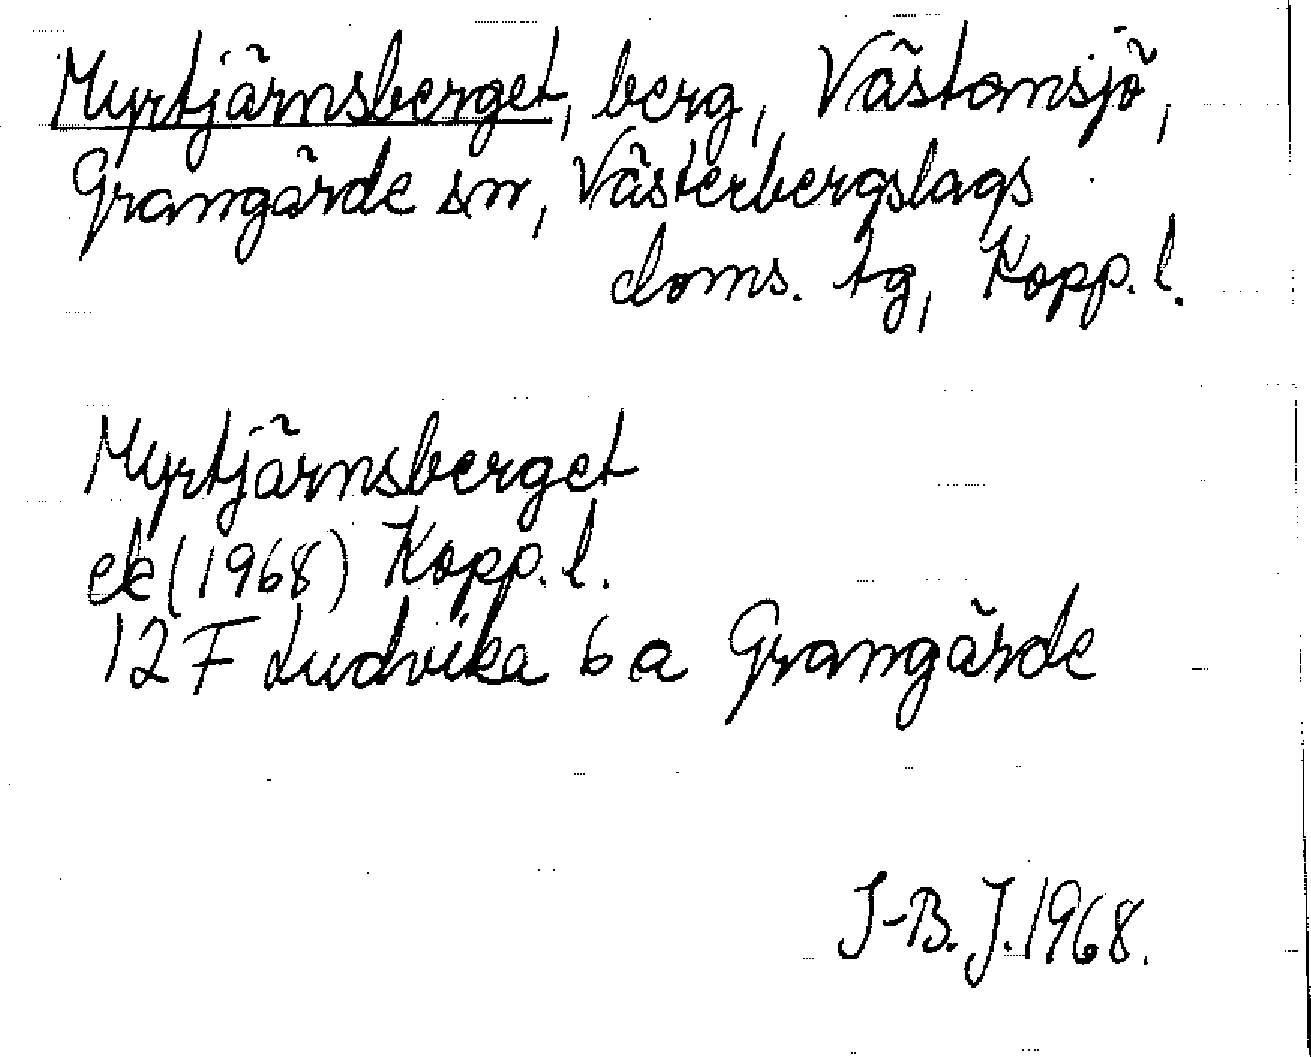 Myrtjärnsberget, berg, Västansjö,
Grangärde sn, Västerbergslags
doms. tg, Kopp. l.
Myrtjärnsberget
ek (1968) Kopp. l.
12 F Ludvika 6 a Grangärde
I-B. J. 1968.